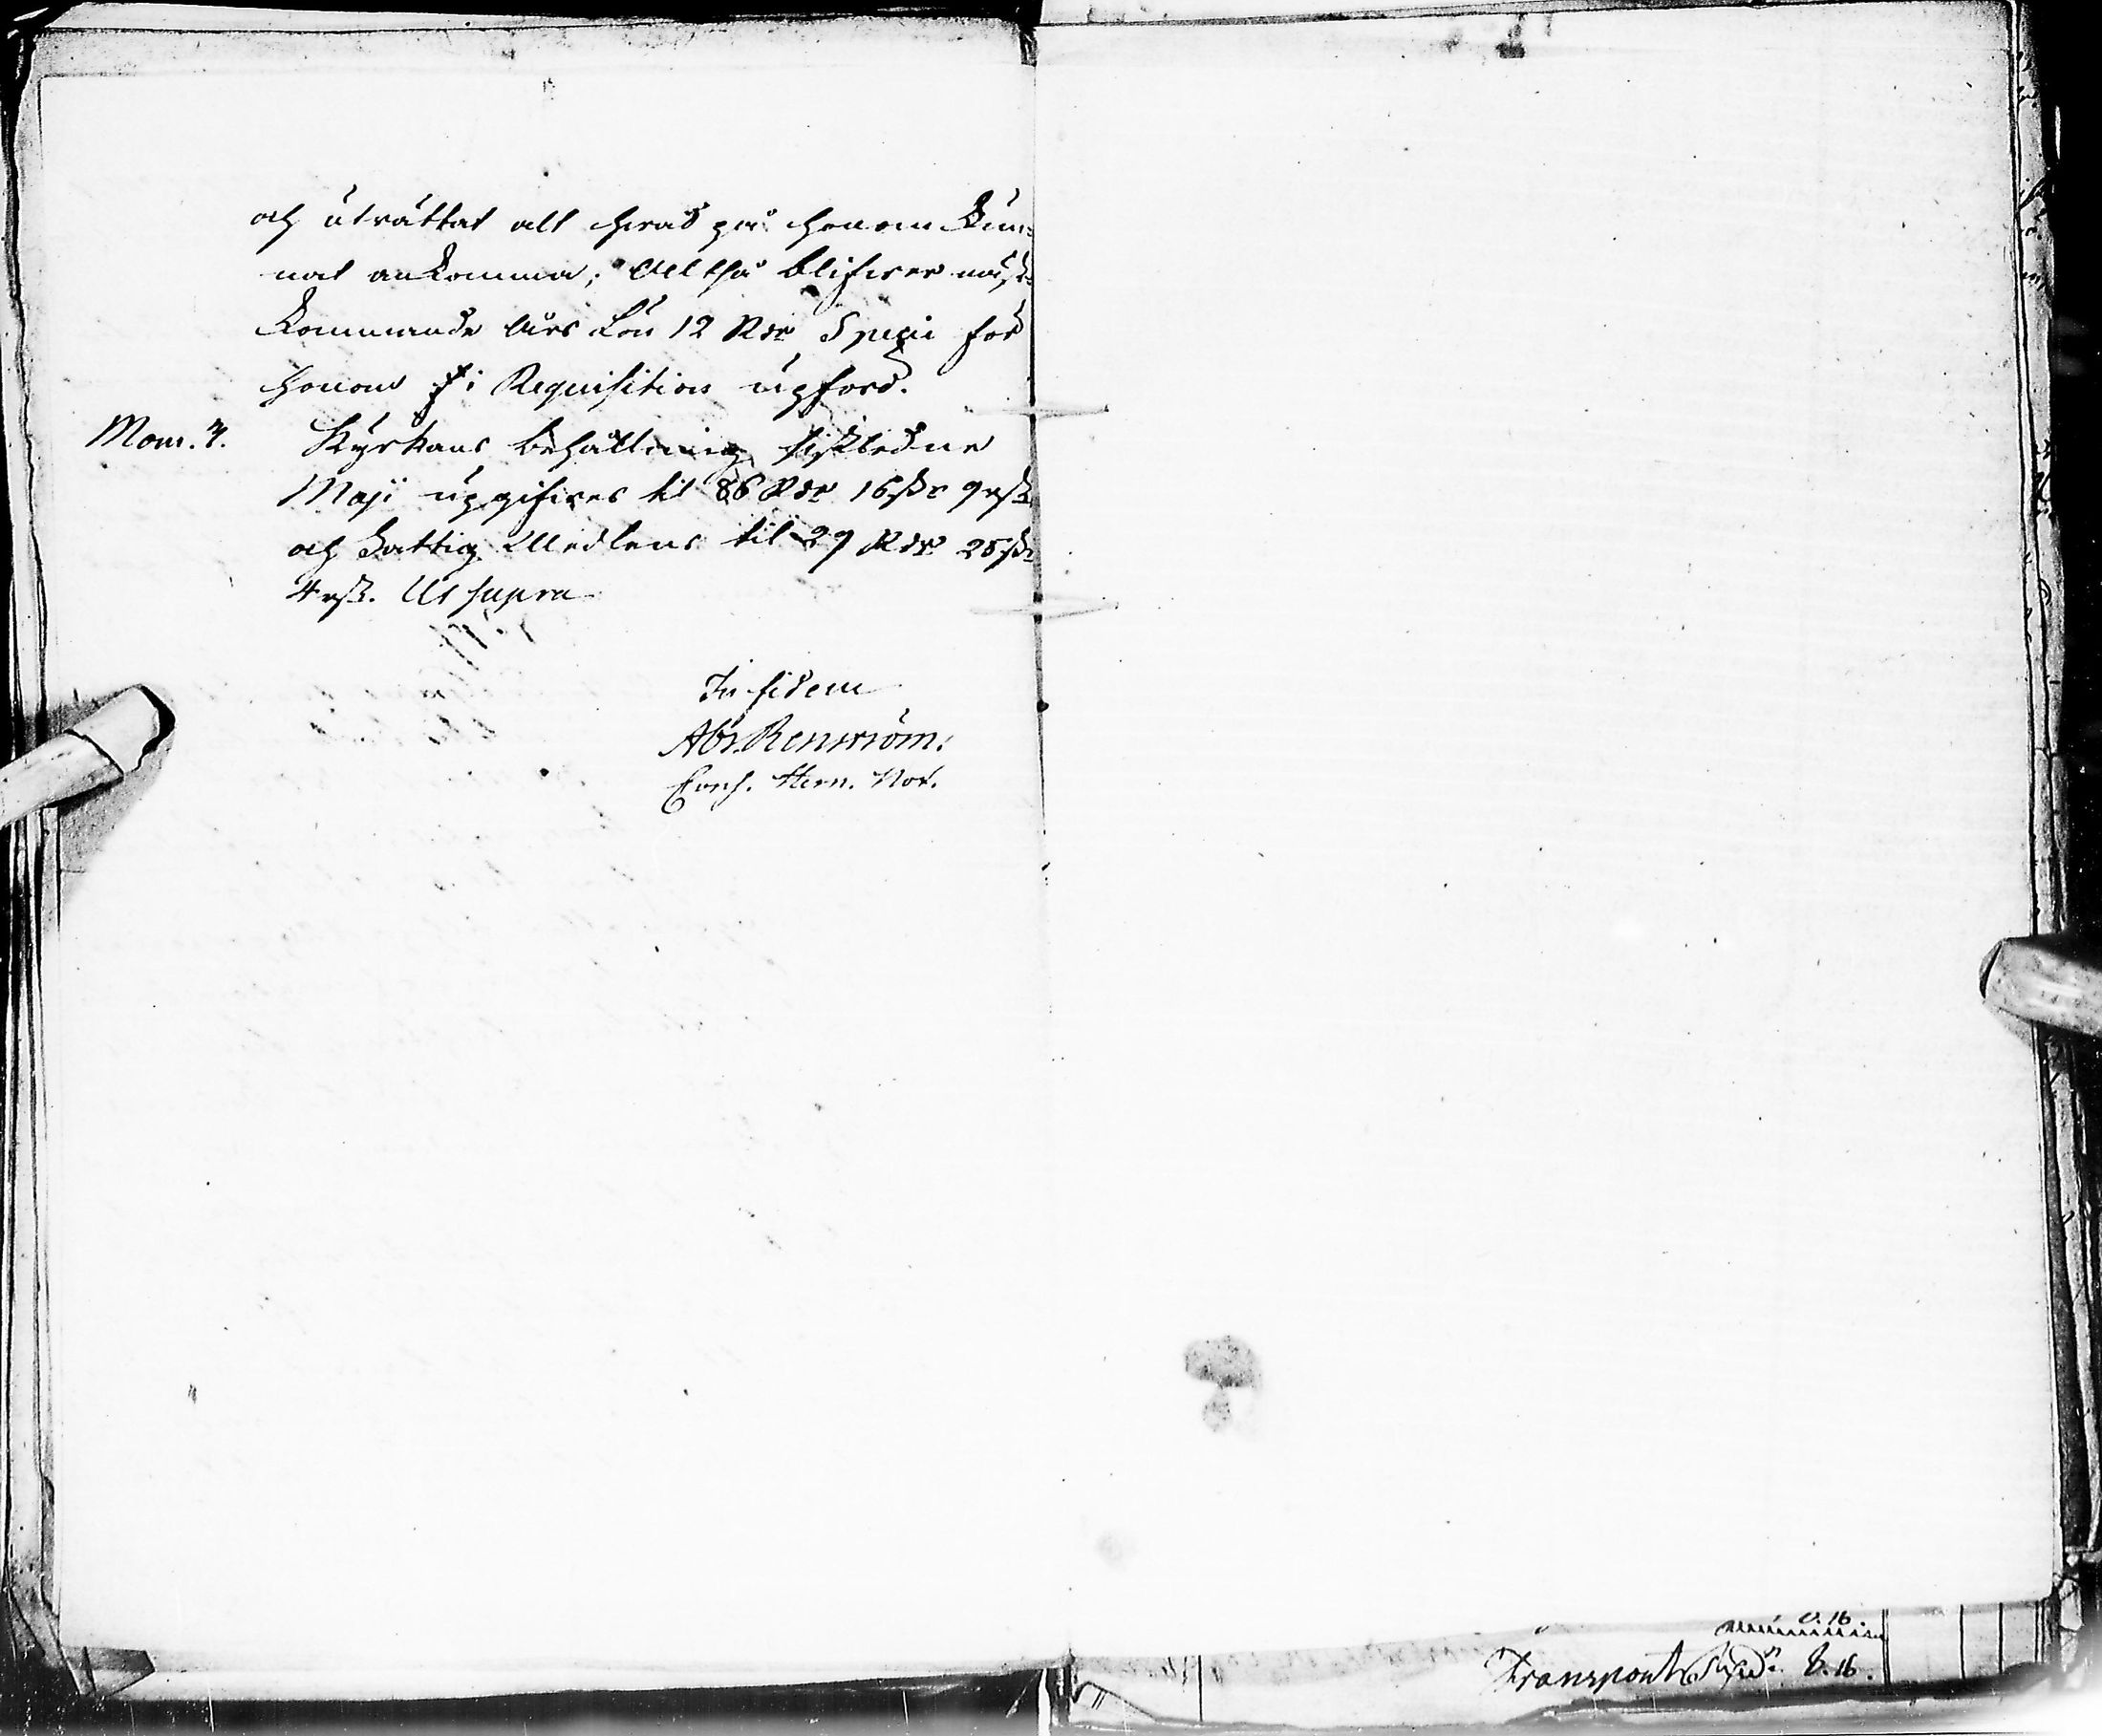 och uträttat allt hvad på honom kun-
nat ankomma; Altså blifwer näst
kommande Års Lön 12 Rdr Specie för
honom i Requisition upförd.
Mom. 7. Kyrkans behållning sistledne
Maji upgifwes til 86 Rdr 16 sk 9 rst.
och Fattig Medlens til 29 Rdr 25 sk
4 rst. Ut supra
In fidem
Abr. Renström.
Cons. Hern. Not.
0.16.
Transport 8.16.